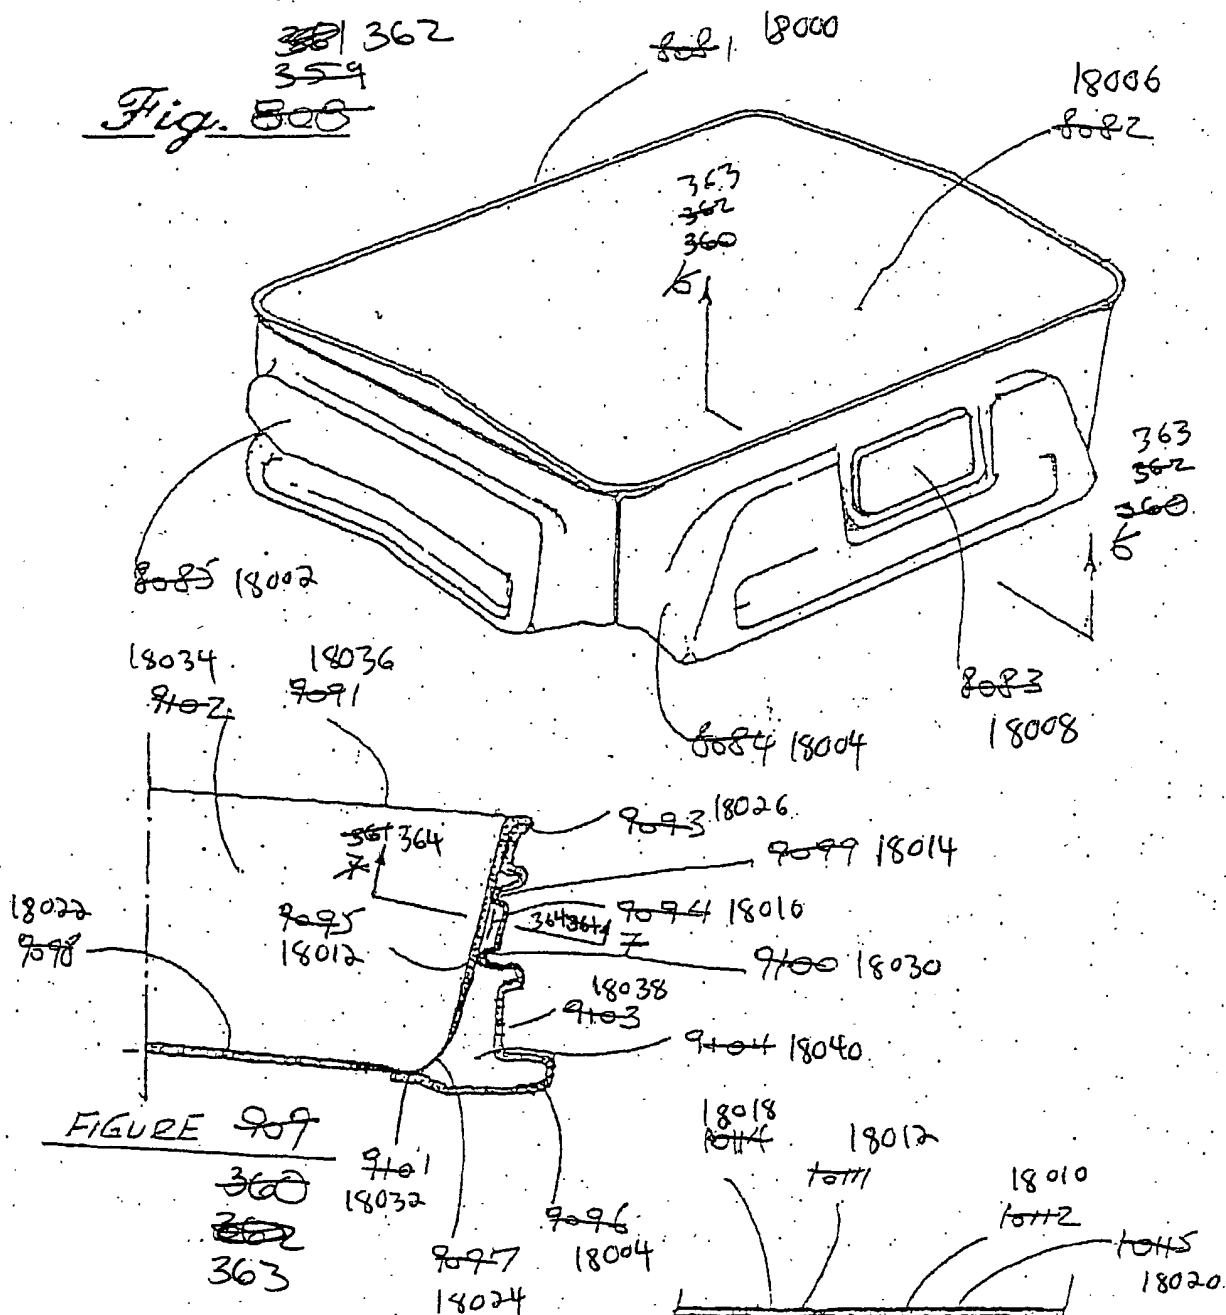 362
359
Fig. 808
8081 18000
18006
8082
363
362
360
6
363
362
360
6
8085 18002
8083
18008
8084 18004
18034
9102
18036
9091
9093 18026
361 364
7
9099 18014
9094 18010
364 361
7
18022
9098
9095
18012
9100 18030
18038
9103
9104 18040
FIGURE 909
360
362
363
9101
18032
9097
18024
9096
18004
18018
10114
18012
10111
18010
10112
10115
18020